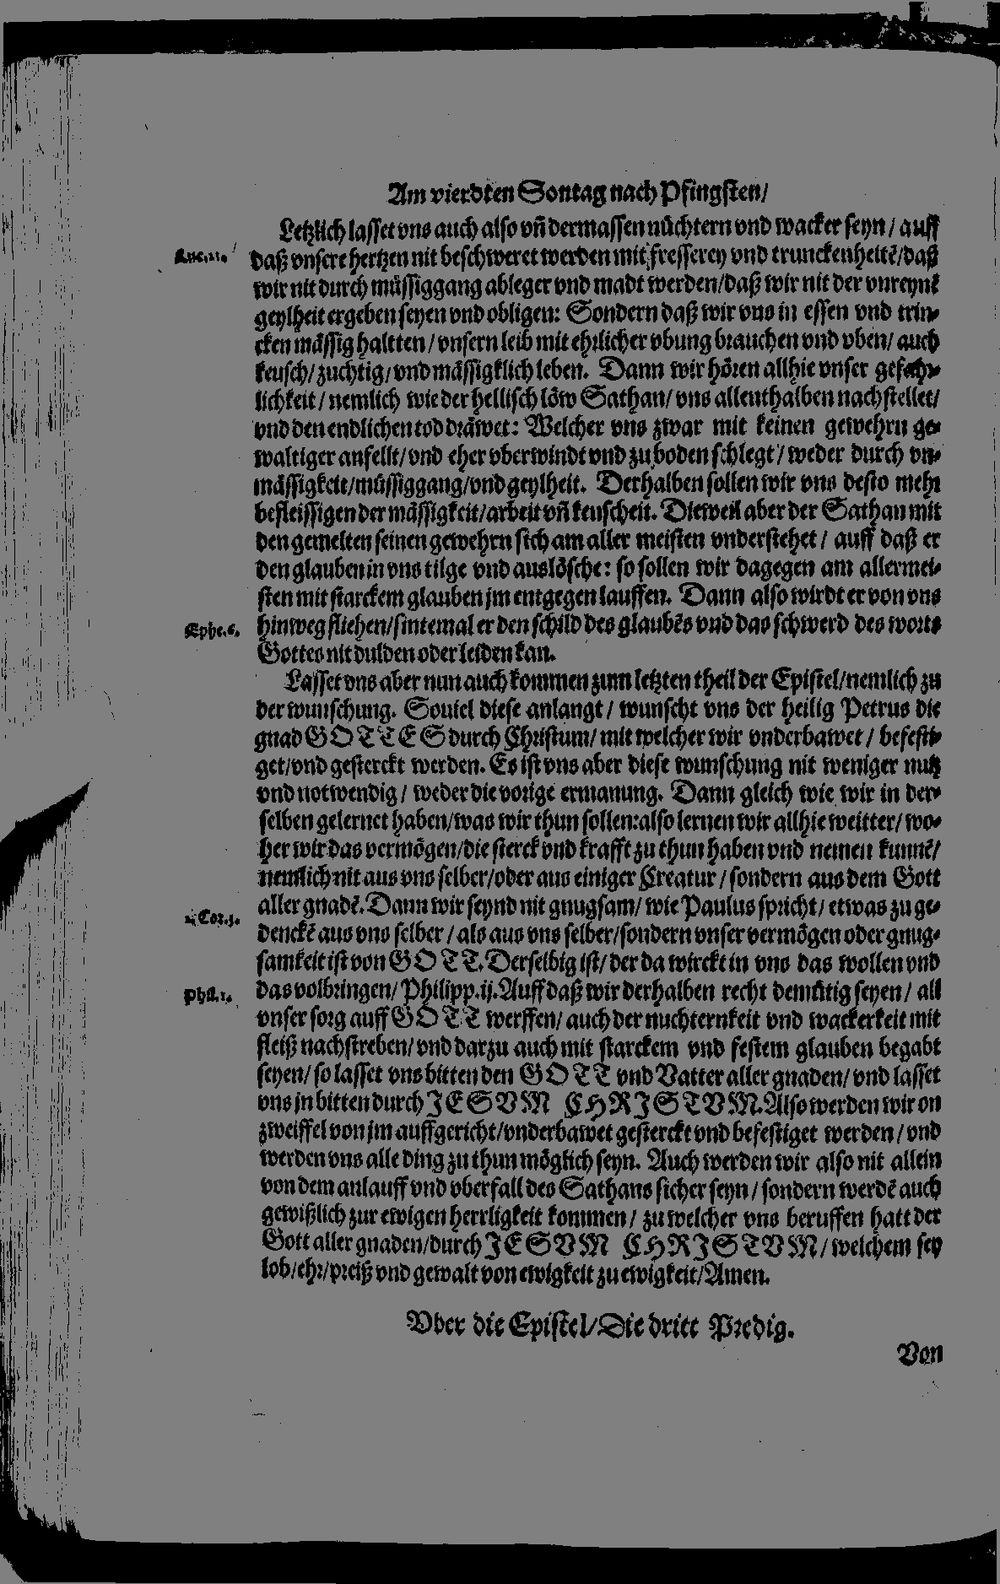 Am vierdten Sontag nach Pfingsten/
Letzlich lasset vns auch also vñ dermassen nüchtern vnd wacker seyn / auff
daß vnsere hertzen nit beschweret werden mit fresserey vnd trunckenheitẽ/daß
wir nit durch müssiggang ableger vnd madt werden/daß wir nit der vnreynẽ
geylheit ergeben seyen vnd obligen: Sondern daß wir vns in essen vnd trin-
cken mässig haltten / vnsern leib mit ehrlicher vbung brauchen vnd vben/ auch
keusch/ zuchtig/ vnd mässigklich leben. Dann wir hören allhie vnser gefehr-
lichkeit / nemlich wie der hellisch löw Sathan/ vns allenthalben nachstellet/
vnd den endlichen tod dräwet: Welcher vns zwar mit keinen gewehrn ge-
waltiger anfellt/ vnd eher vberwindt vnd zu boden schlegt / weder durch vn-
mässigkeit/müssiggang/vnd geylheit. Derhalben sollen wir vns desto mehr
befleissigen der mässigkeit/arbeit vñ keuscheit. Dieweil aber der Sathan mit
den gemelten seinen gewehrn sich am aller meisten vnderstehet / auff daß er
den glauben in vns tilge vnd auslösche: so sollen wir dagegen am allermei-
sten mit starckem glauben jm entgegen lauffen. Dann also wirdt er von vns
Ephe.6.
hinweg fliehen/sintemal er den schild des glaubẽs vnd das schwerd des worts
Gottes nit dulden oder leiden kan.
Lasset vns aber nun auch kommen zum letzten theil der Epistel/nemlich zu
der wunschung. Souiel diese anlangt / wunscht vns der heilig Petrus die
gnad GOTTES durch Christum/ mit welcher wir vnderbawet / befesti-
get/vnd gesterckt werden. Es ist vns aber diese wunschung nit weniger nutz
vnd notwendig / weder die vorige ermanung. Dann gleich wie wir in der-
selben gelernet haben/was wir thun sollen:also lernen wir allhie weitter/ wo-
her wir das vermögen/die sterck vnd krafft zu thun haben vnd nemen kunnẽ/
nemlich nit aus vns selber/oder aus einiger Creatur / sondern aus dem Gott
aller gnadẽ. Dann wir seynd nit gnugsam/ wie Paulus spricht/ etwas zu ge-
denckẽ aus vns selber / als aus vns selber/sondern vnser vermögen oder gnug-
samkeit ist von GOTT. Derselbig ist/ der da wirckt in vns das wollen vnd
das volbringen/ Philipp.ij. Auff daß wir derhalben recht demütig seyen/ all
vnser sorg auff GOTT werffen/ auch der nuchternkeit vnd wackerkeit mit
fleiß nachstreben/ vnd darzu auch mit starckem vnd festem glauben begabt
seyen/ so lasset vns bitten den GOTT vnd Vatter aller gnaden/ vnd lasset
vns jn bitten durch JESVM CHRISTVM. Also werden wir on
zweiffel von jm auffgericht/vnderbawet gesterckt vnd befestiget werden / vnd
werden vns alle ding zu thun möglich seyn. Auch werden wir also nit allein
von dem anlauff vnd vberfall des Sathans sicher seyn / sondern werdẽ auch
gewißlich zur ewigen herrligkeit kommen / zu welcher vns beruffen hatt der
Gott aller gnaden/durch JESVM CHRISTVM / welchem sey
lob/ehr/preiß vnd gewalt von ewigkeit zu ewigkeit/Amen.
Vber die Epistel/Die dritt Predig.
Von